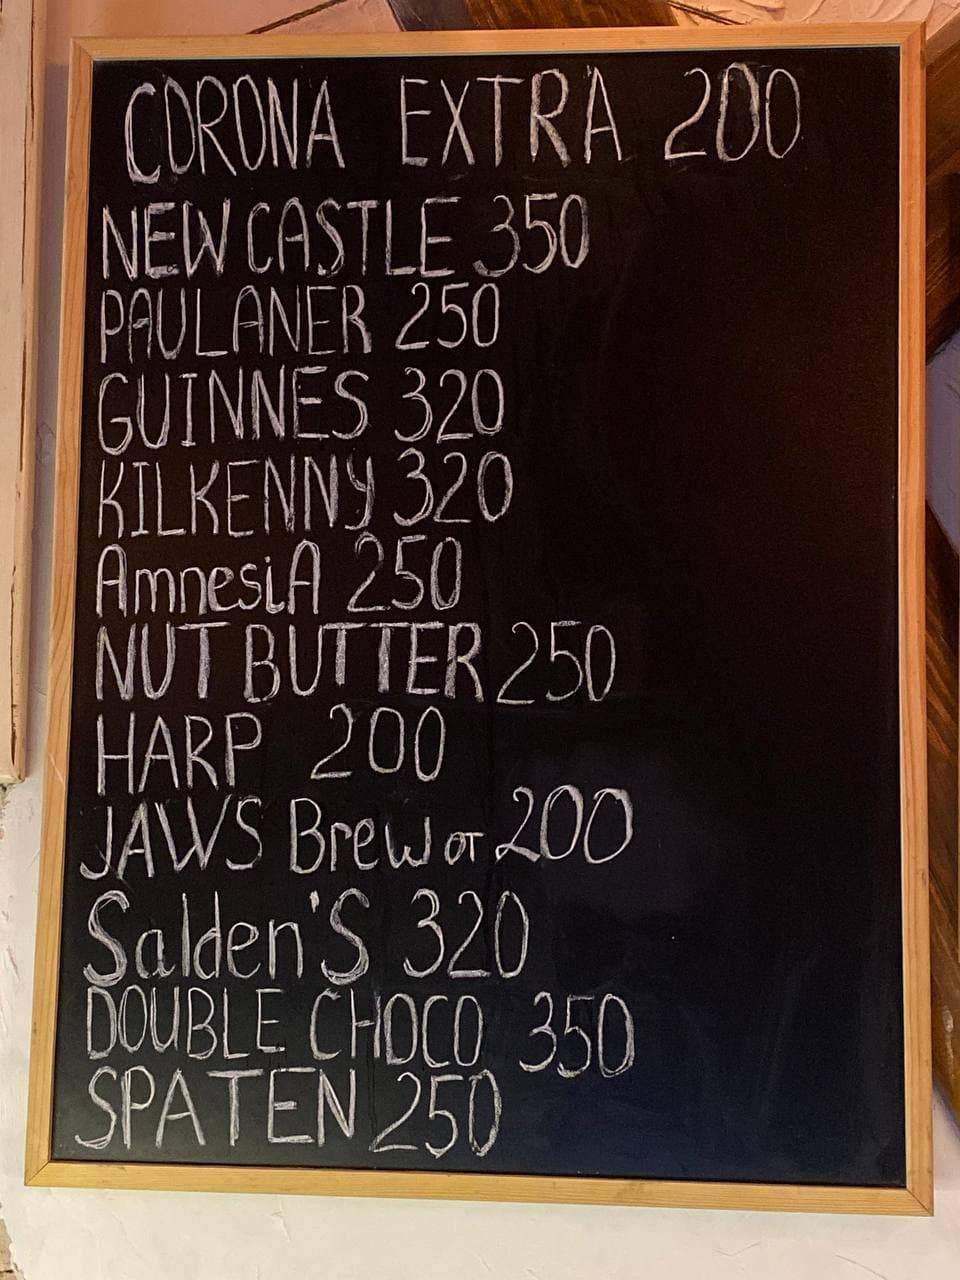 CORONA EXTRA 200
NEW CASTLE 350
PAULANER 250
GUINNES 320
KILKENNY 320
AmnesiA 250
NUT BUTTER 250
HARP 200
JAWS Brew от 200
Salden'S 320
DOUBLE CHOCO 350
SPATEN 250